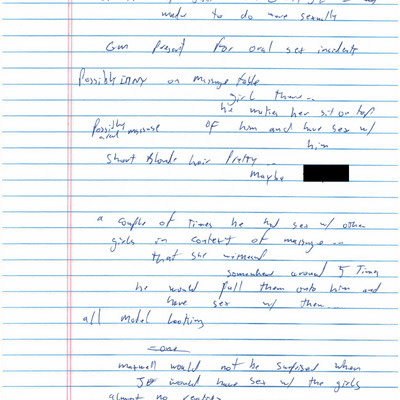 made to do more sexually
Gm present for oral sex incidents
Possibly on massage table
girl there...
he motions her sit on top
Possibly oral massage of him and have sex w/
him
Short blonde hair pretty...
maybe
a couple of times he had sex w/ other
girls in context of massage...
that she witnessed
somewhere around 5 times
he would pull them onto him and
have sex w/ them...
all model looking
maxwell would not be surprised when
JE would have sex w/ the girls
almost no